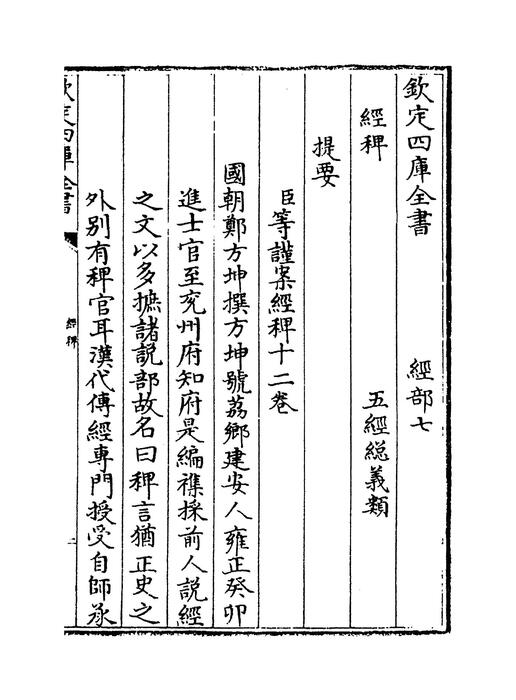 欽定四庫全書 經部七
經稗 五經総義類
提要
臣等謹案經稗十二卷
國朝鄭方坤撰方坤號荔鄉建安人雍正癸卯
進士官至兖州府知府是編襍採前人説經
之文以多摭諸説部故名曰稗言猶正史之
外别有稗官耳漢代傳經專門授受自師承
欽定四庫全書
經稗